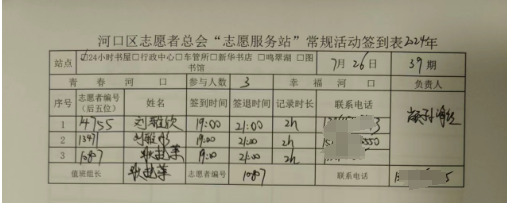 河口区志愿者总会“志愿服务站”常规活动签到表2024年
站点 ☑24小时书屋□行政中心□车管所□新华书店 □鸣翠湖 □图书馆 7月26日 39期
青春河口 参与人数 3 幸福河口 负责人
序号 志愿者编号（后五位） 姓名 签到时间 签退时间 记录时长 联系电话
1 4755 19:00 21:00 2h
2 1347 19:00 21:00 2h
3 10807 19:00 21:00 2h
值班组长 志愿者编号 10807 联系电话